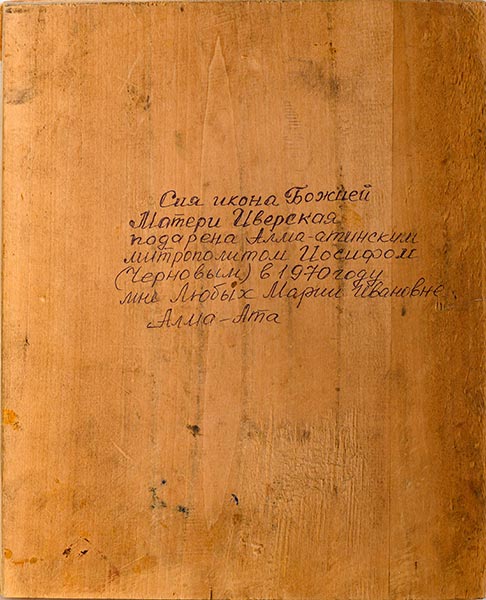 Сия икона Божией
Матери Иверская
подарена Алма-атинским
митрополитом Иосифом
(Черновым) в 1970 году
мне Любых Марии Ивановне.
Алма-Ата